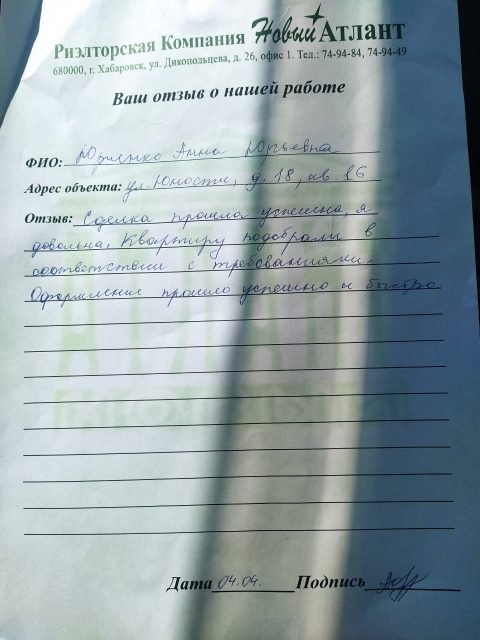 Риэлторская Компания Новый Атлант
680000, г. Хабаровск, ул. Дикопольцева, д. 26, офис 1. Тел.: 74-94-84, 74-94-49
Ваш отзыв о нашей работе
ФИО: Анна Юрьевна
Адрес объекта: ул. Юности, д. 18, кв 26
Отзыв: Сделка прошла успешна, я
довольна. Квартиру подобрали в
соответствии с требованиями.
Оформление прошло успешно и быстро
Дата 04.04. Подпись